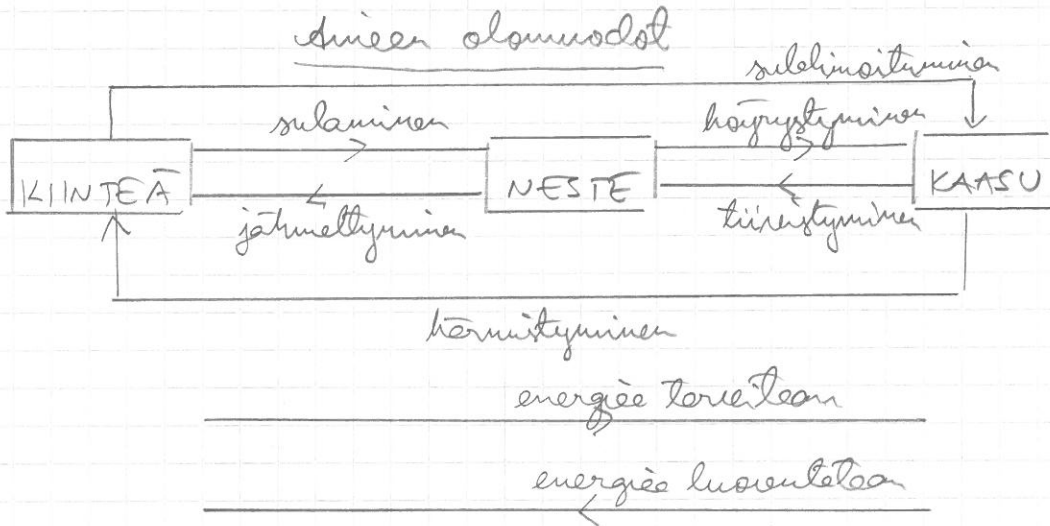 Aineen olomuodot
sublimoituminen
sulaminen
höyrystyminen
KIINTEÄ
NESTE
KAASU
jähmettyminen
tiivistyminen
härmistyminen
energiaa tarvitaan
energiaa luovutetaan